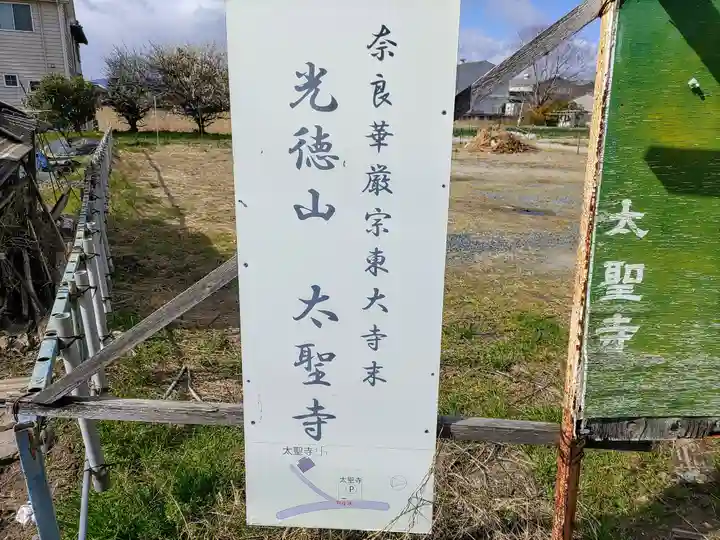 奈良華厳宗東大寺末
光徳山 太聖寺
太聖寺
太聖寺
P
太聖寺